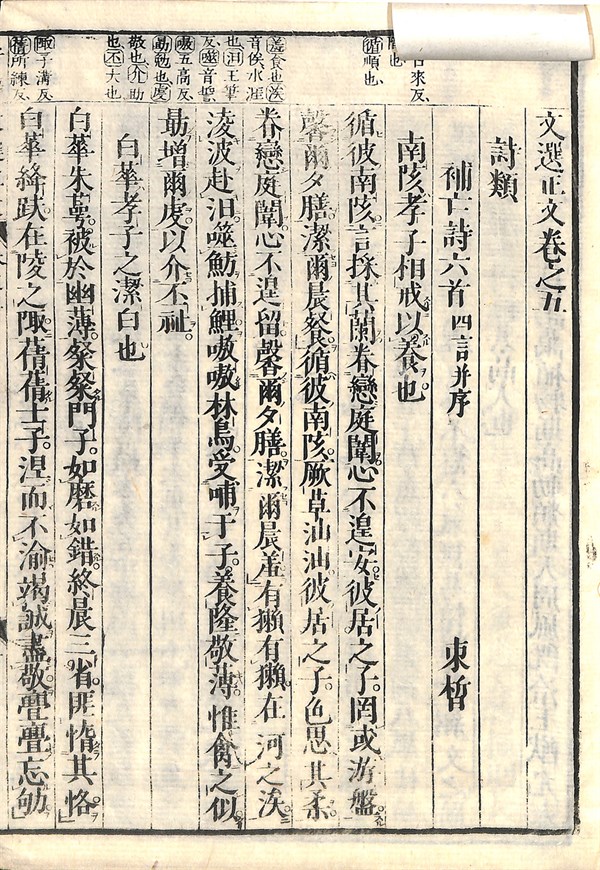 古來反
也
循順也
羞食也涘
音俟水涯
也汨王筆
反噬音誓
嗷五高反
勗勉也虔
敬也介助
也丕大也
陬子溝反
蒨所練反
文選正文卷之五
詩類
補亡詩六首四言并序 束晳
南陔孝子相戒以養也
循彼南陔言採其蘭眷戀庭闈心不遑安彼居之子罔或游盤
馨爾夕膳潔爾晨餐循彼南陔厥草油油彼居之子色思其柔
眷戀庭闈心不遑留馨爾夕膳潔爾晨羞有獺有獺在河之涘
凌波赴汨噬魴捕鯉嗷嗷林烏受哺于子養隆敬薄惟禽之似
勗增爾虔以介丕祉
白華孝子之潔白也
白華朱萼被於幽薄粲粲門子如磨如錯終晨三省匪惰其恪
白華絳趺在陵之陬蒨蒨士子涅而不渝竭誠盡敬亹亹忘劬